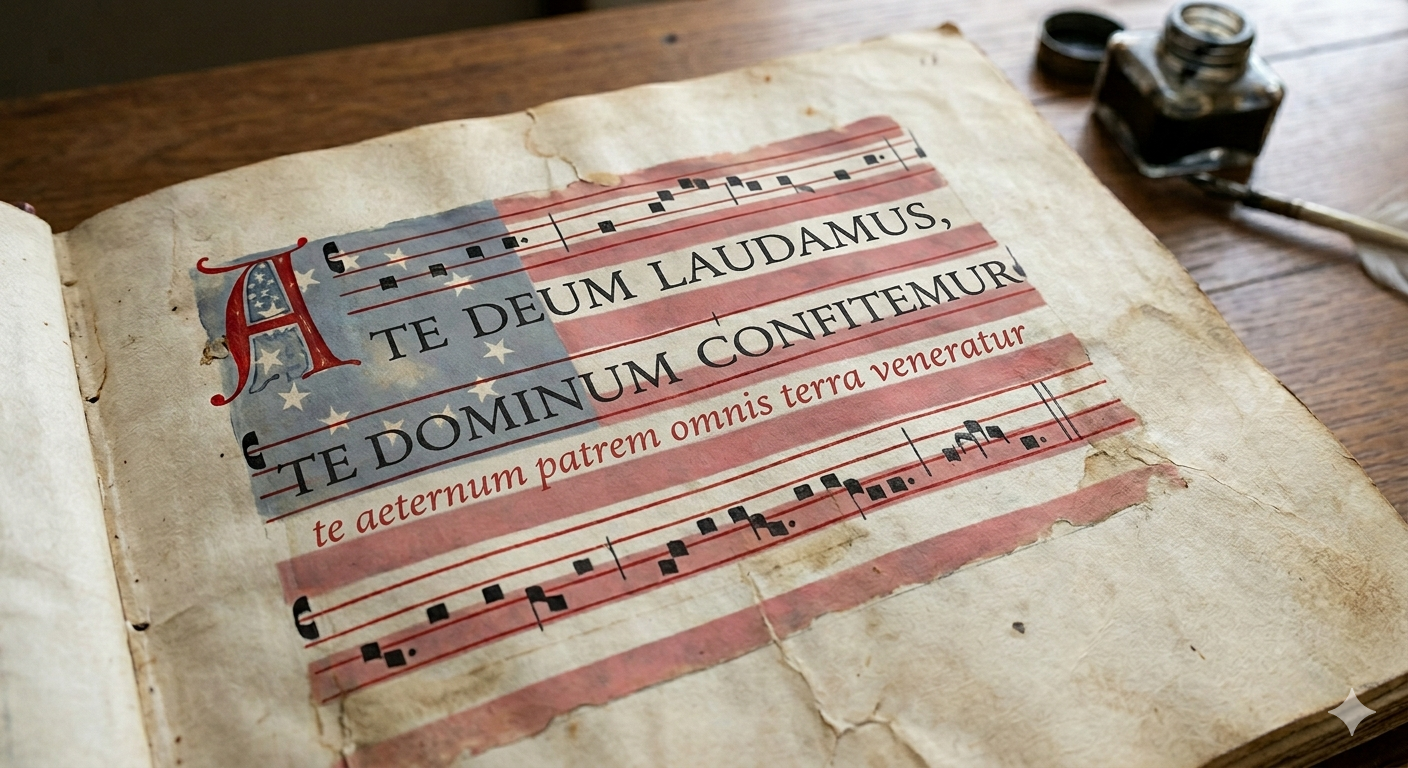 A
TE DEUM LAUDAMUS,
TE DOMINUM CONFITEMUR.
te aeternum patrem omnis terra veneratur